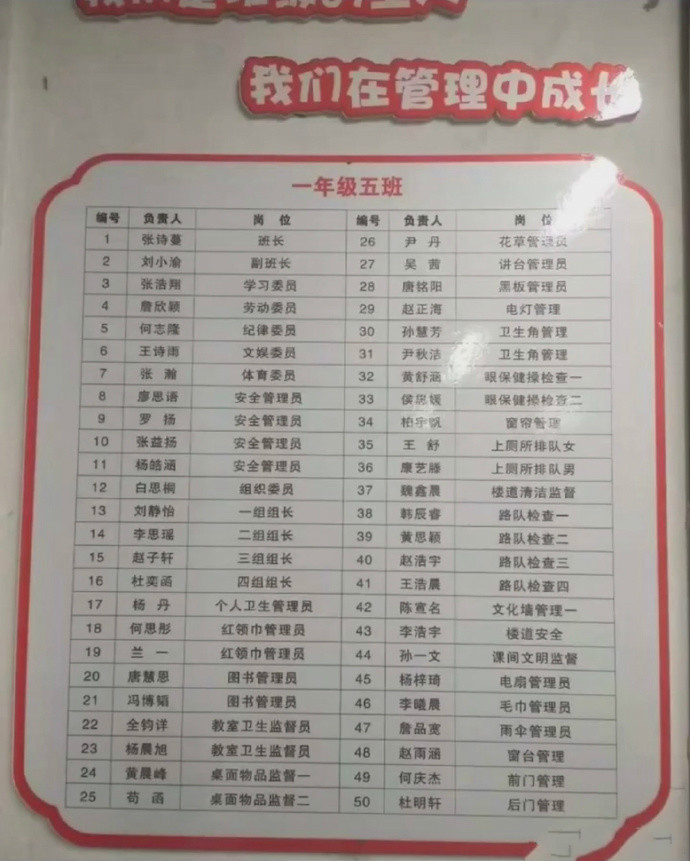 我们在管理中成长
一年级五班
编号 负责人 岗位 编号 负责人 岗位
1 张诗蔓 班长 26 尹丹 花草管理员
2 刘小渝 副班长 27 吴茜 讲台管理员
3 张浩翔 学习委员 28 唐铭阳 黑板管理员
4 詹欣颖 劳动委员 29 赵正海 电灯管理
5 何志隆 纪律委员 30 孙慧芳 卫生角管理
6 王诗雨 文娱委员 31 尹秋洁 卫生角管理
7 张瀚 体育委员 32 黄舒涵 眼保健操检查一
8 廖思语 安全管理员 33 侯思媛 眼保健操检查二
9 罗扬 安全管理员 34 柏宇帆 窗帘管理
10 张益扬 安全管理员 35 王舒 上厕所排队女
11 杨皓涵 安全管理员 36 康艺滕 上厕所排队男
12 白思桐 组织委员 37 魏鑫晨 楼道清洁监督
13 刘静怡 一组组长 38 韩辰睿 路队检查一
14 李思瑶 二组组长 39 黄思颖 路队检查二
15 赵子轩 三组组长 40 赵浩宇 路队检查三
16 杜奕函 四组组长 41 王浩晨 路队检查四
17 杨丹 个人卫生管理员 42 陈宣名 文化墙管理一
18 何思彤 红领巾管理员 43 李浩宇 楼道安全
19 兰一 红领巾管理员 44 孙一文 课间文明监督
20 唐慧恩 图书管理员 45 杨梓琦 电扇管理员
21 冯博韬 图书管理员 46 李曦晨 毛巾管理员
22 全钧详 教室卫生监督员 47 詹品宽 雨伞管理员
23 杨晨旭 教室卫生监督员 48 赵雨涵 窗台管理
24 黄晨峰 桌面物品监督一 49 何庆杰 前门管理
25 苟函 桌面物品监督二 50 杜明轩 后门管理